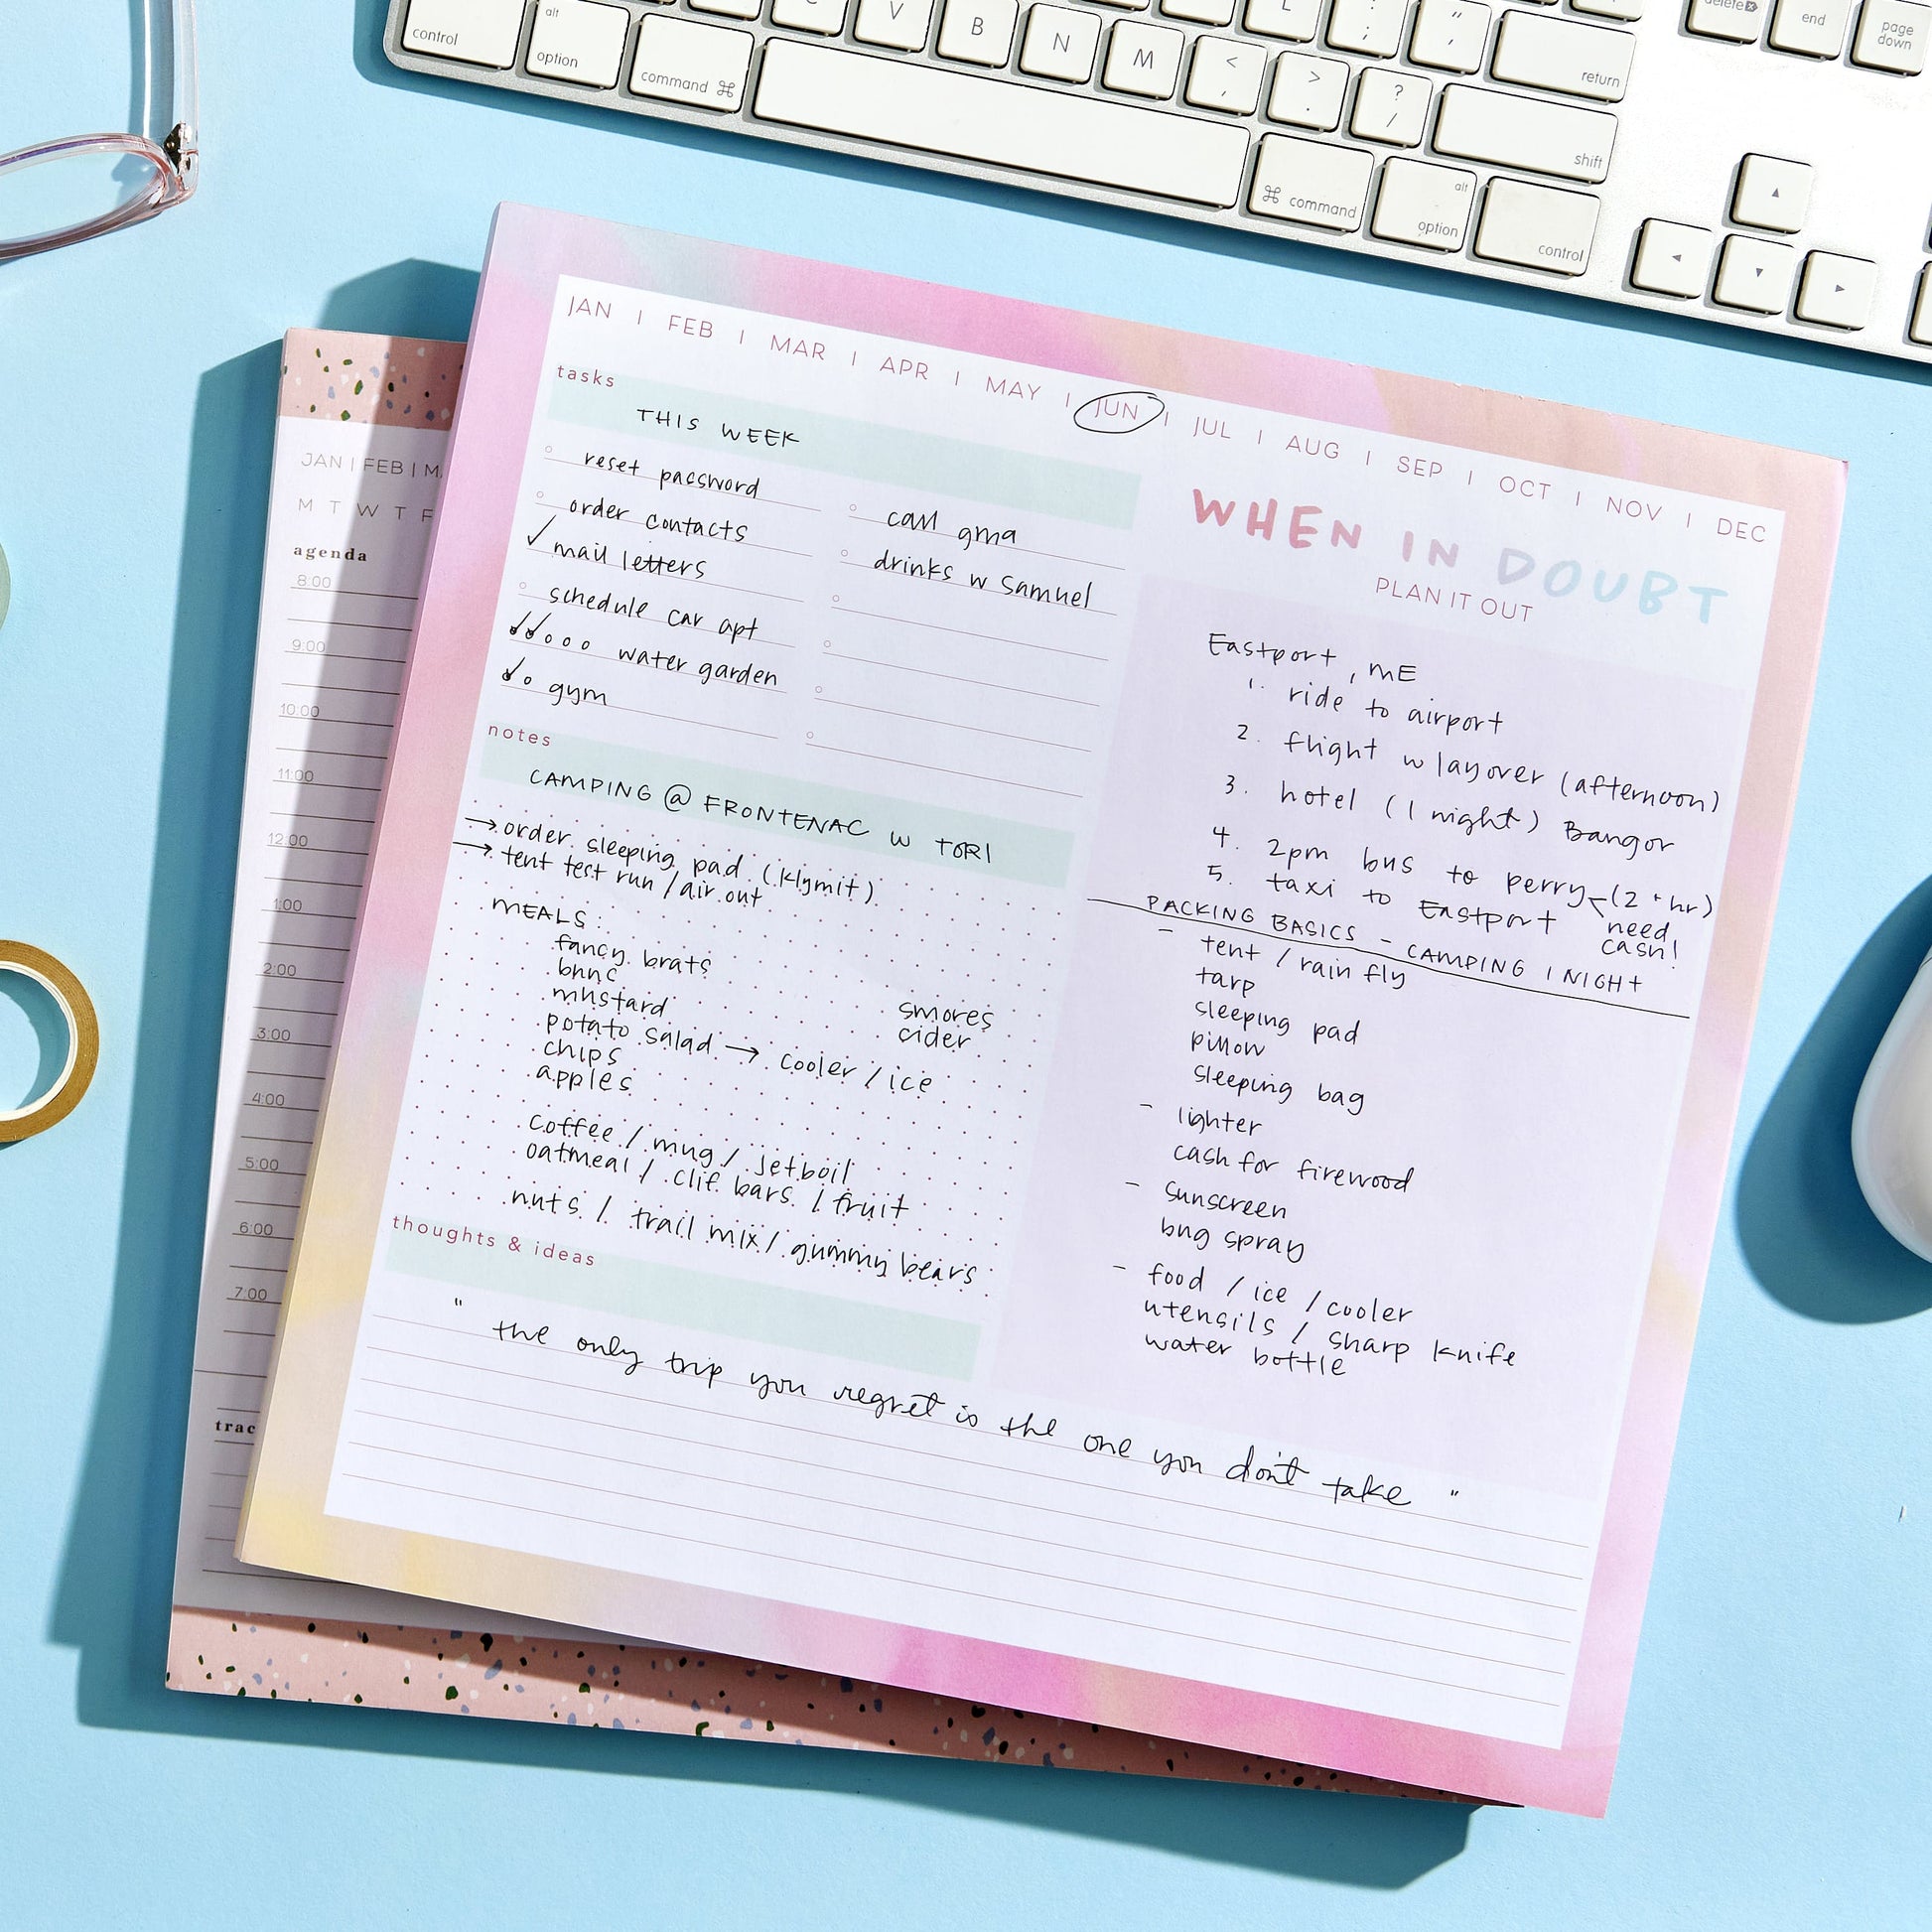 control
alt
option
command ⌘
C
V
B
N
M
<
,
>
.
?
/
L
:
;
"
,
return
shift
⌘ command
alt
option
control
delete
end
page
down
JAN | FEB | MAR | APR | MAY | JUN | JUL | AUG | SEP | OCT | NOV | DEC
tasks
THIS WEEK
reset password
order contacts
✓ mail letters
schedule car apt
water garden
gym
call gma
drinks w samuel
notes
CAMPING @ FRONTENAC W TORI
→ order sleeping pad (klymit)
→ tent test run / air out
MEALS:
fancy brats
buns
mustard
potato salad → cooler / ice
chips
apples
smores
cider
coffee / mug / jetboil
oatmeal / clif bars / fruit
nuts / trail mix / gummy bears
thoughts & ideas
" the only trip you regret is the one you don't take "
WHEN IN DOUBT
PLAN IT OUT
Eastport, ME
1. ride to airport
2. flight w layover (afternoon)
3. hotel (1 night) Bangor
4. 2pm bus to perry (2+hr)
5. taxi to Eastport
need
cash!
PACKING BASICS - CAMPING 1 NIGHT
- tent / rain fly
tarp
sleeping pad
pillow
sleeping bag
- lighter
cash for firewood
- sunscreen
bug spray
- food / ice / cooler
utensils / sharp knife
water bottle
JAN | FEB | M
M T W T F
agenda
8:00
9:00
10:00
11:00
12:00
1:00
2:00
3:00
4:00
5:00
6:00
7:00
trac